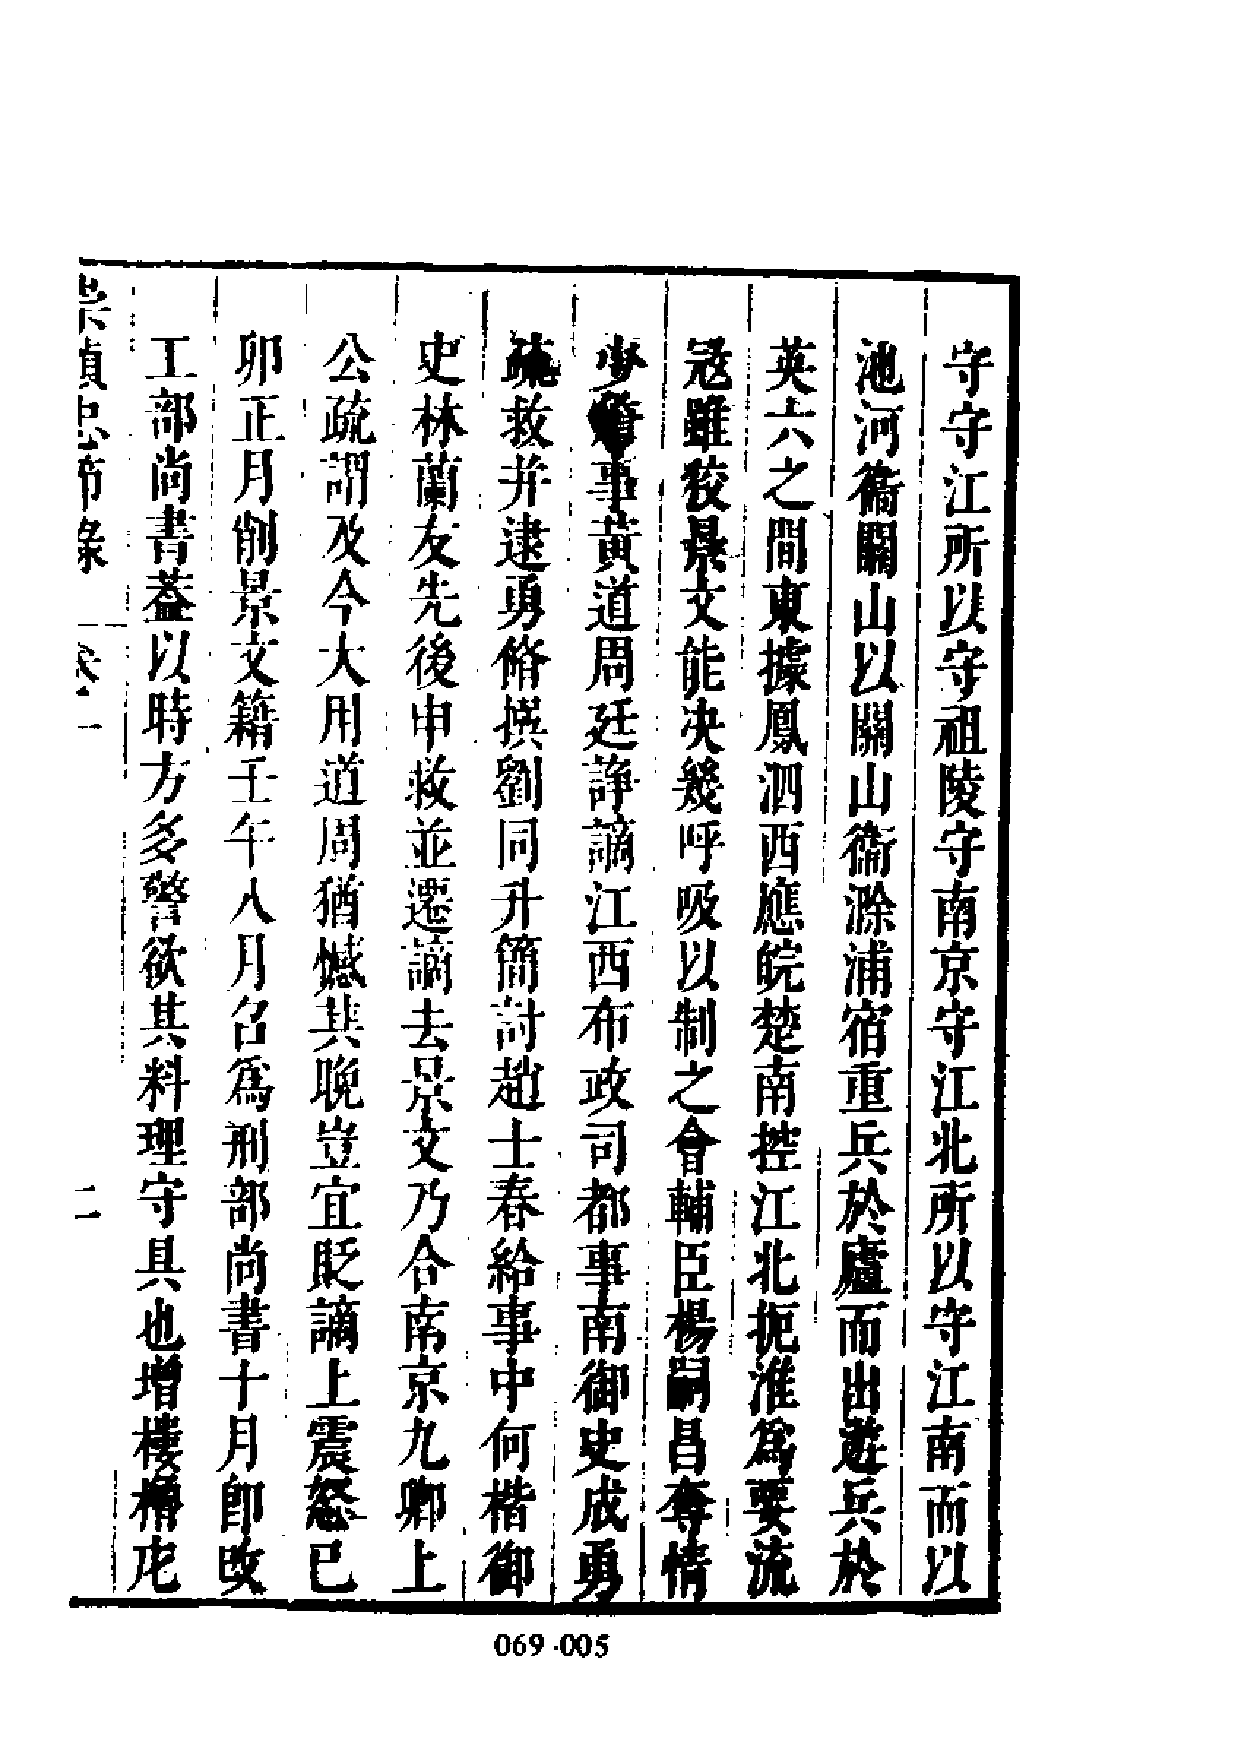 守守江所以守祖陵守南京守江北所以守江南而以
池河衞關山以關山衞滁浦宿重兵於廬而出遊兵於
英六之間東據鳳泗西應皖楚南控江北扼淮為要流
冦雖狡景文能决幾呼吸以制之會輔臣楊嗣昌奪情
少詹事黄道周廷諍謫江西布政司都事南御史成勇
疏救并逮勇脩撰劉同升簡討趙士春給事中何楷御
史林蘭友先後申救並遷謫去景文乃合南京九卿上
公疏謂及今大用道周猶憾其晚豈宜貶謫上震怒已
卯正月削景文籍壬午八月召為刑部尚書十月卽改
工部尚書葢以時方多警欲其料理守具也增樓櫓庀
崇禎忠節錄 卷一 二
069·005